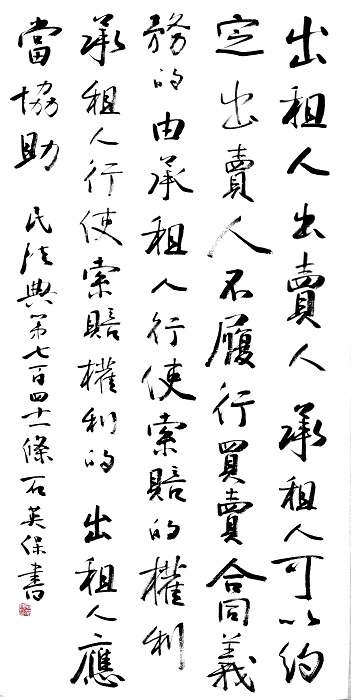 出租人出賣人承租人可以約
定出賣人不履行買賣合同義
務的由承租人行使索賠的權利
承租人行使索賠權利的出租人應
當協助
民法典第七百四十一條石英保書